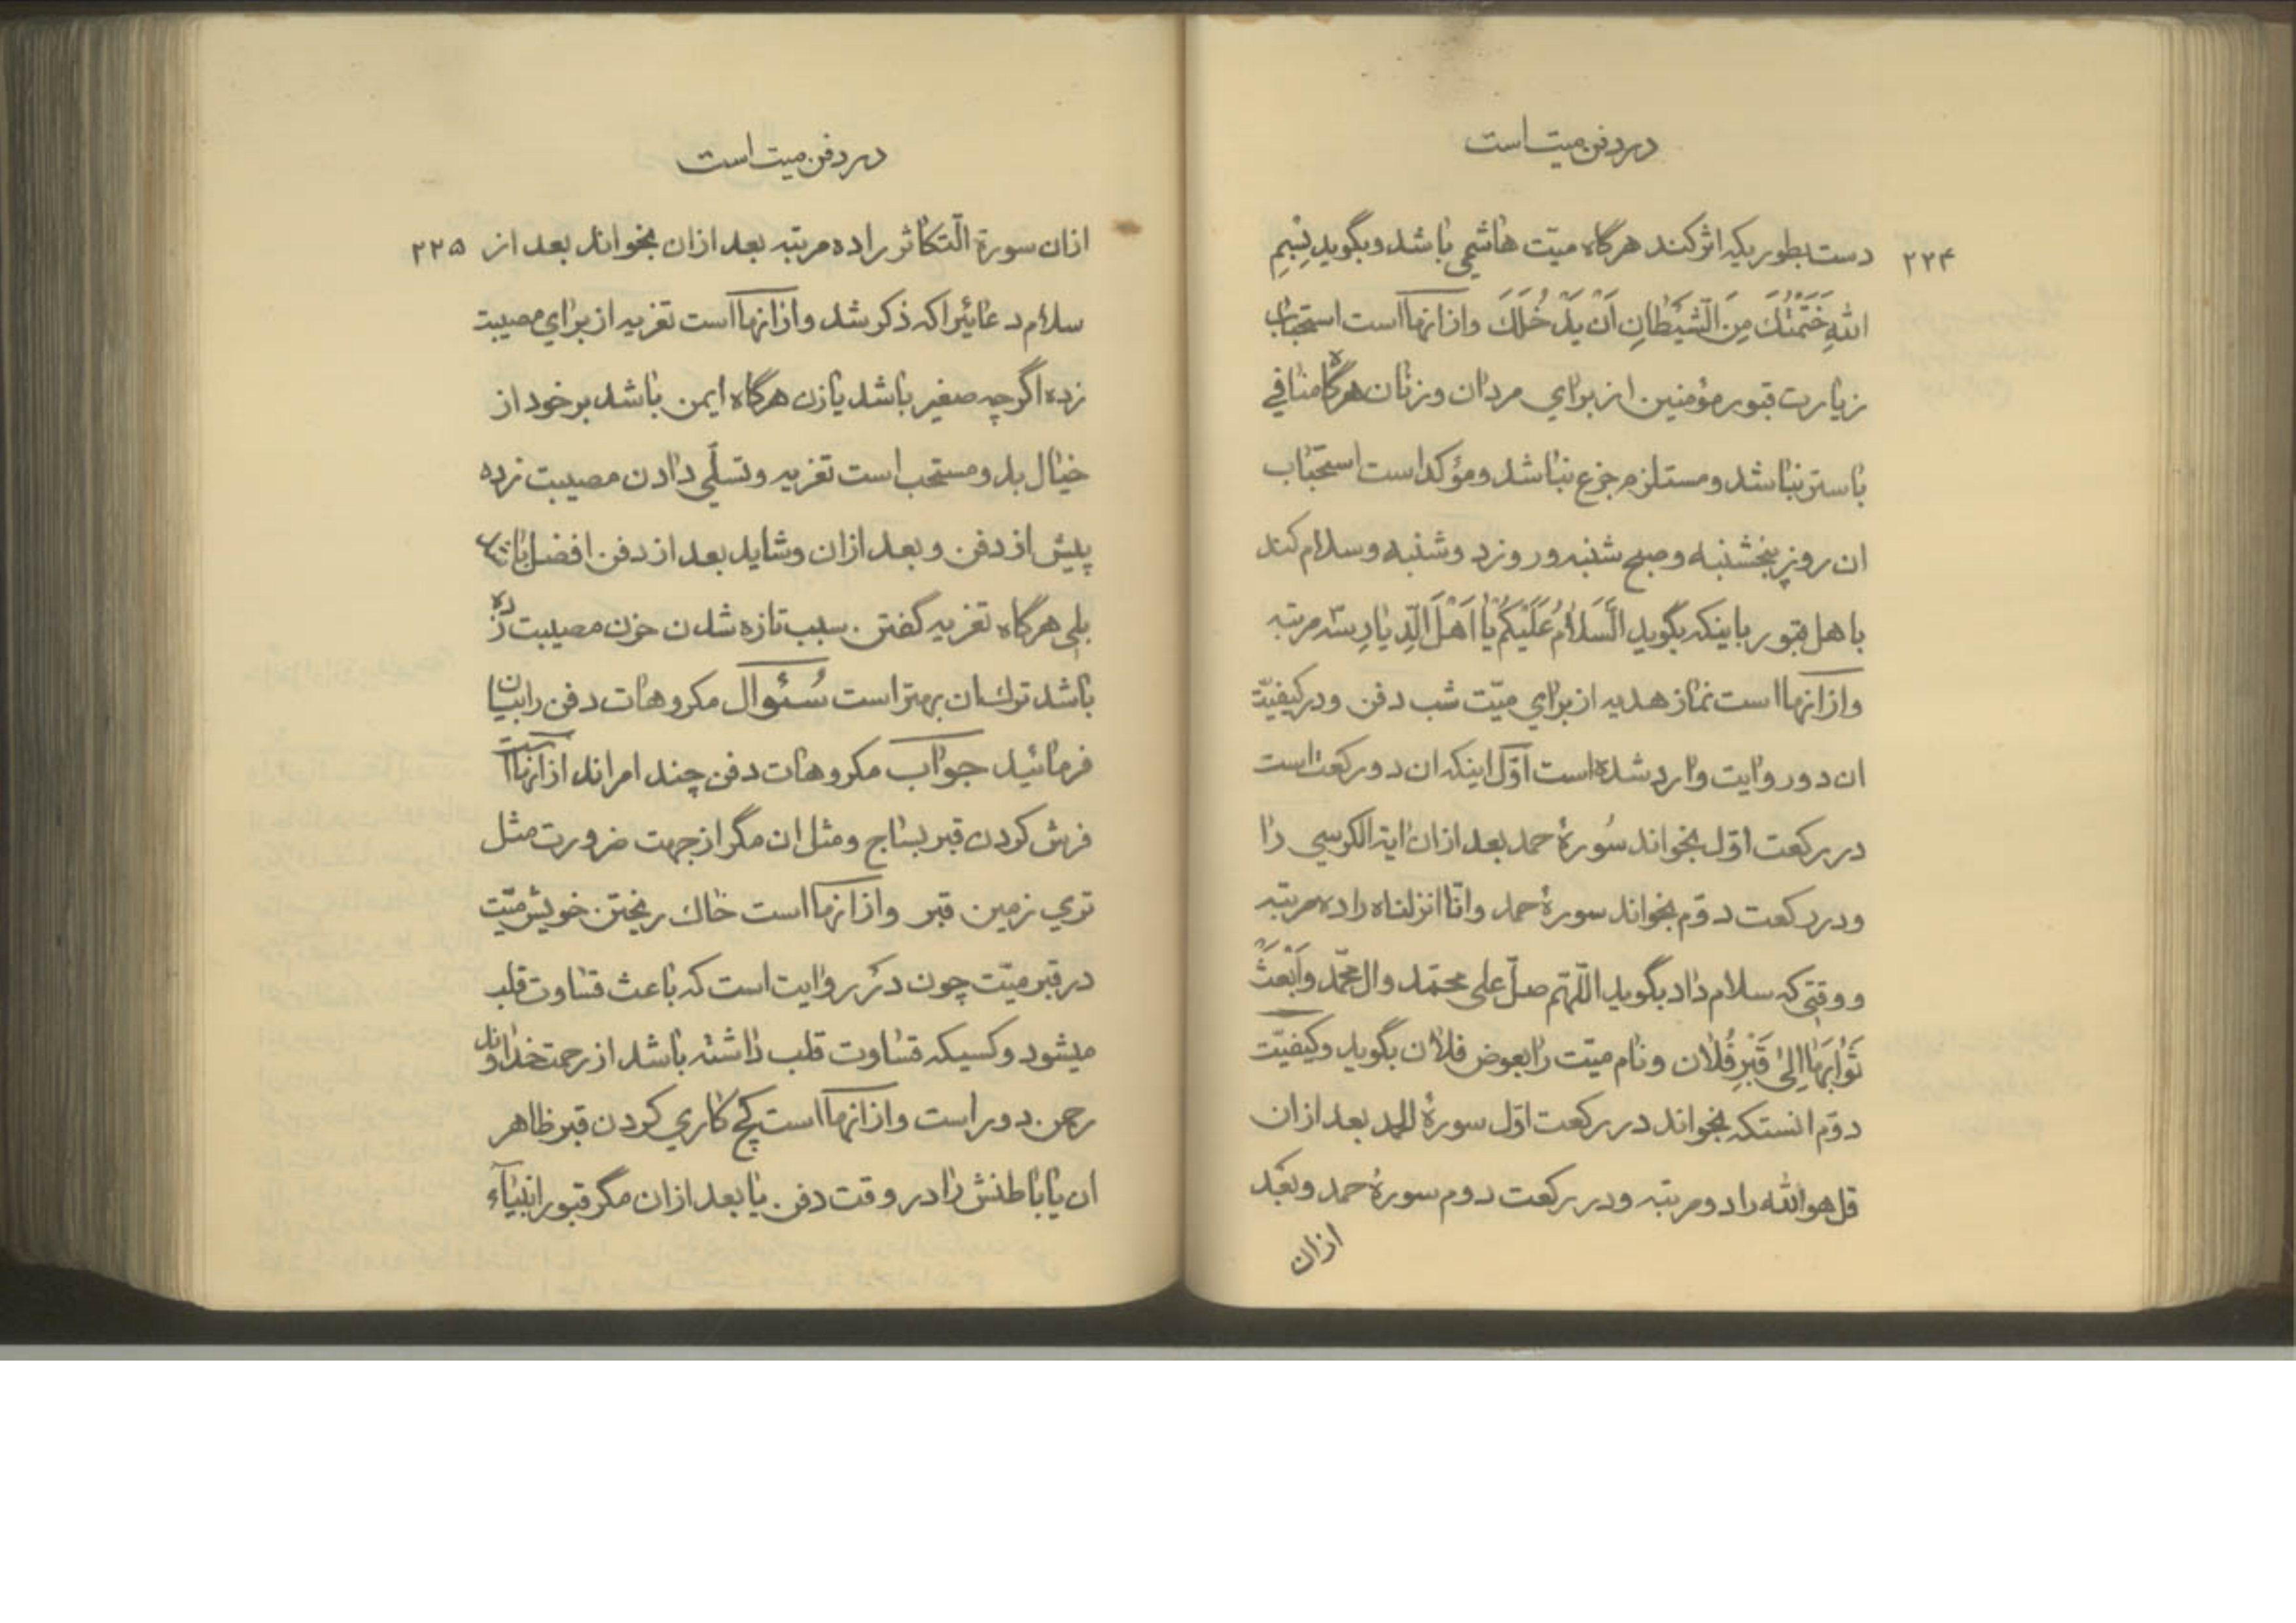 در دفن میت است
۲۲۴
دست بطوریکه اثر کند هرگاه میّت هاشمی باشد و بگوید بِسْمِ
اللهِ خَتَمْتُكَ مِنَ الشَّيْطَانِ اَنْ يَدْخُلَكَ و از انهااست استحباب
زیارت قبور مؤمنین از برای مردان و زنان هرگاه منافی
با ستر نباشد و مستلزم جزع نباشد و مؤکد است استحباب
ان روز پنجشنبه و صبح شنبه و روز دوشنبه و سلام کند
باهل قبور باینکه بگوید اَلسَّلَامُ عَلَيْكُمْ يَا اَهْلَ الدِّيَارِ سه مرتبه
و از انهااست نماز هدیه از برای میّت شب دفن و در کیفیّت
ان دو روایت وارد شده است اوّل اینکه ان دو رکعت است
در رکعت اوّل بخواند سُورهٔ حمد بعد از ان ایة الکرسی را
و در رکعت دوّم بخواند سورهٔ حمد و انّا انزلناه را ده مرتبه
و وقتی که سلام داد بگوید اللّهمّ صلّ علی محمّد و ال محمّد وَابْعَثْ
ثَوَابَهَا اِلیٰ قَبْرِ فُلان و نام میّت را بعوض فلان بگوید و کیفیّت
دوّم انستکه بخواند در رکعت اوّل سورهٔ الحمد بعد از ان
قل هو الله را دو مرتبه و در رکعت دوم سورهٔ حمد و بعد
ازان
در دفن میت است
ازان سورة التّکاثر را ده مرتبه بعد ازان بخواند بعد از ۲۲۵
سلام دعائیرا که ذکر شد و از انهااست تعزیه از برای مصیبت
زده اگرچه صغیر باشد یا زن هرگاه ایمن باشد بر خود از
خیال بد و مستحب است تعزیه و تسلّی دادن مصیبت زده
پیش از دفن و بعد ازان و شاید بعد از دفن افضل باشد
بلی هرگاه تعزیه گفتن سبب تازه شدن حزن مصیبت زده
باشد ترك ان بهتر است سُئوال مکروهات دفن را بیان
فرمائید جواب مکروهات دفن چند امراند از انهااست
فرش کردن قبر بساج و مثل ان مگر از جهت ضرورت مثل
تری زمین قبر و از انهااست خاك ریختن خویش میّت
در قبر میّت چون در روایت است که باعث قساوت قلب
میشود و کسیکه قساوت قلب داشته باشد از رحمت خداوند
رحمن دور است و از انهااست گچ کاری کردن قبر ظاهر
ان یا باطنش را در وقت دفن یا بعد ازان مگر قبور انبیآء